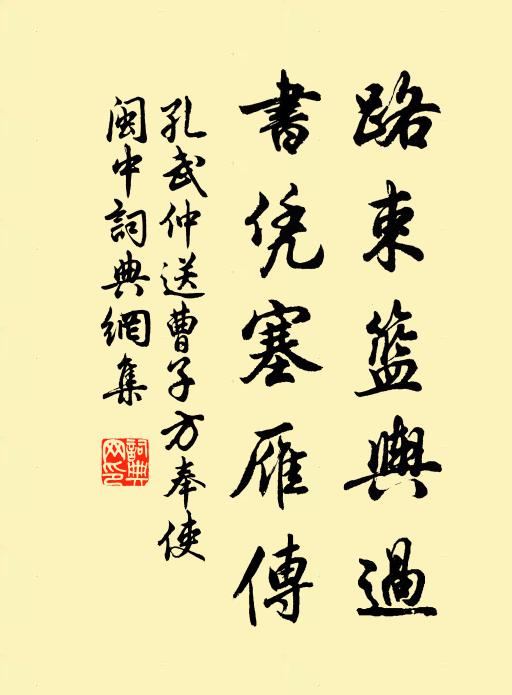 路束籃輿過
書凭塞雁傳
孔武仲送曹子方奉使
閩中詞典網集
詞典網印